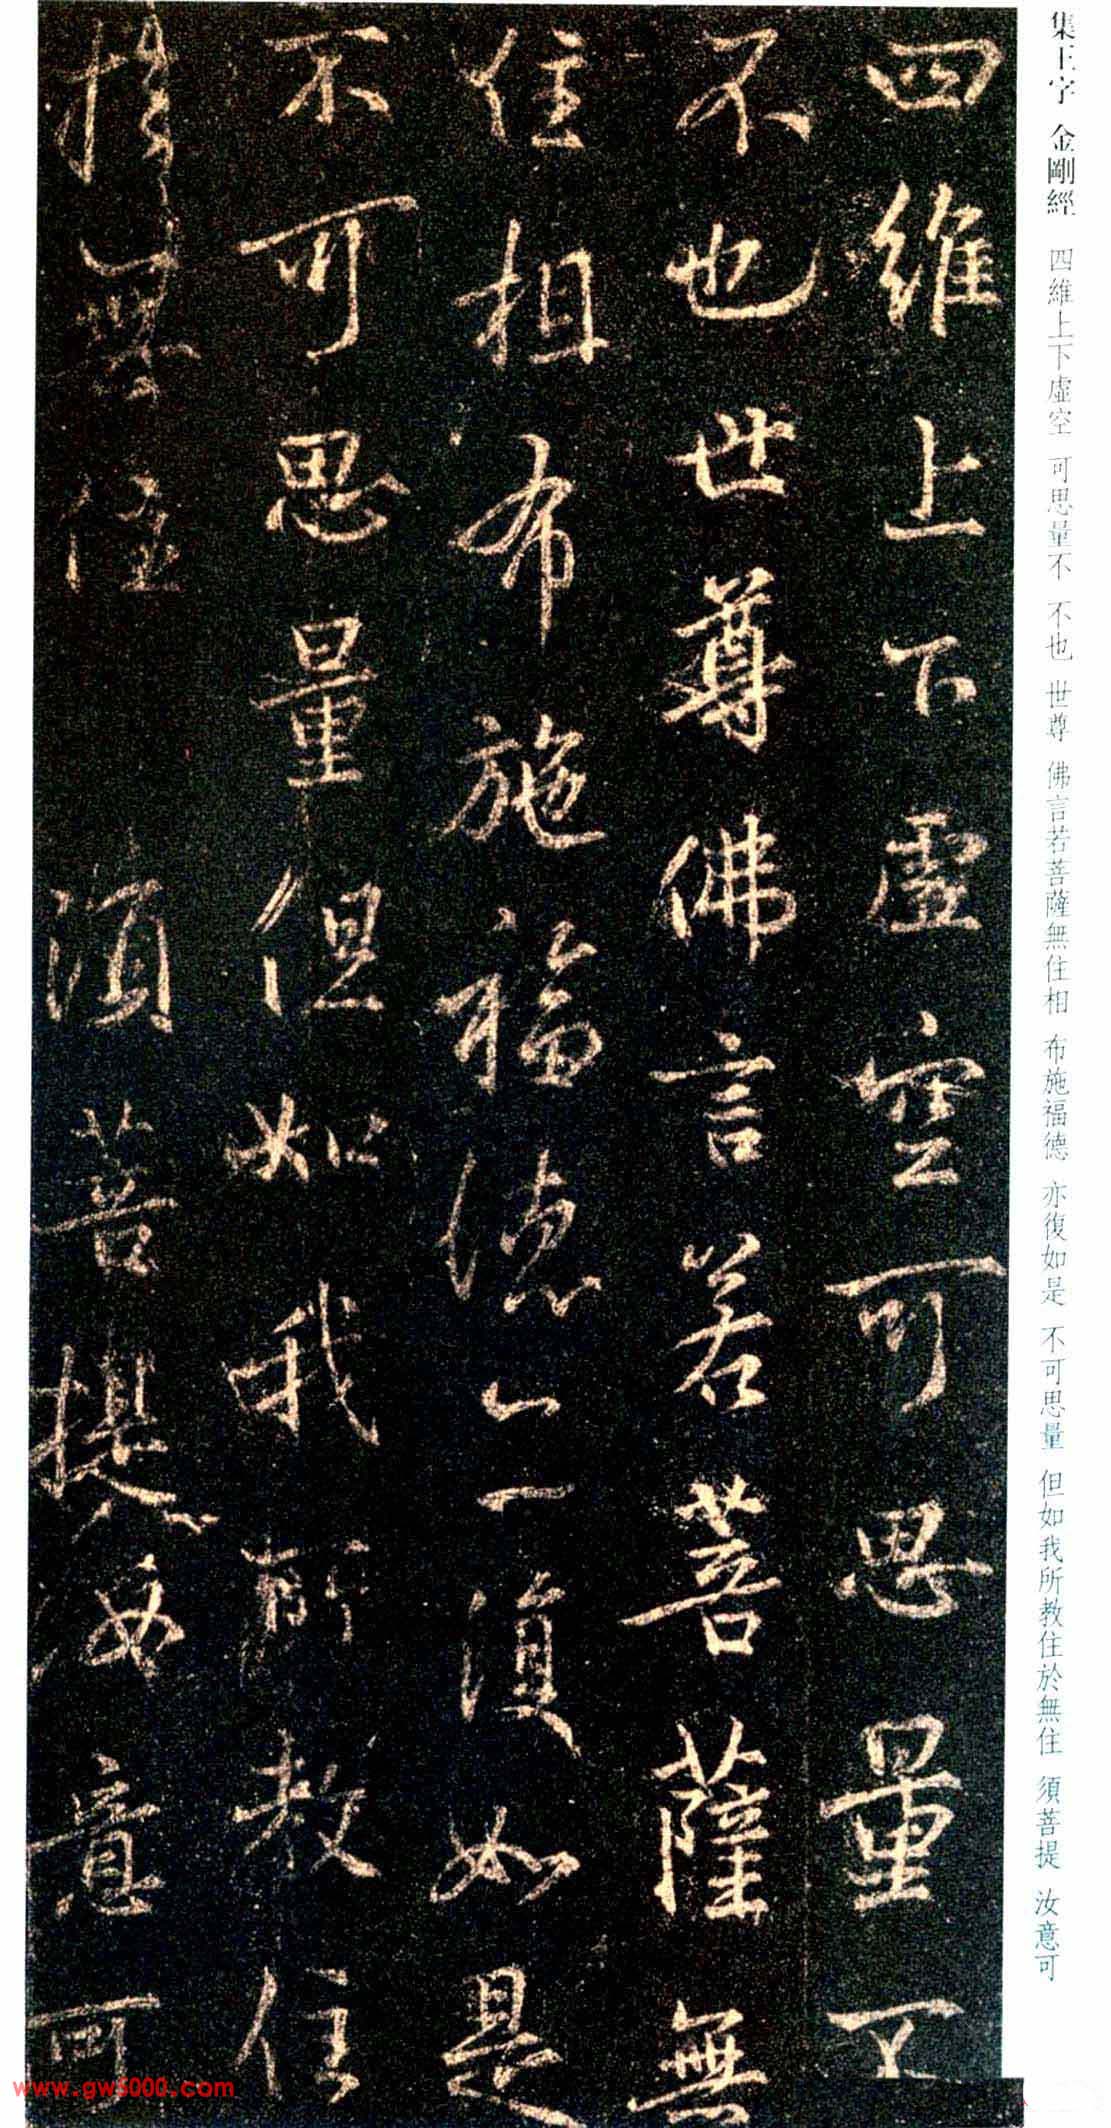 集王字 金剛經 四維上下虛空 可思量不 不也 世尊 佛言若菩薩無住相 布施福德 亦復如是 不可思量 但如我所教住於無住 須菩提 汝意可
四維上下虛空可思量不
不也世尊佛言若菩薩無
住相布施福德亦復如是
不可思量但如我所教住
於無住 須菩提汝意可
www.gw5000.com